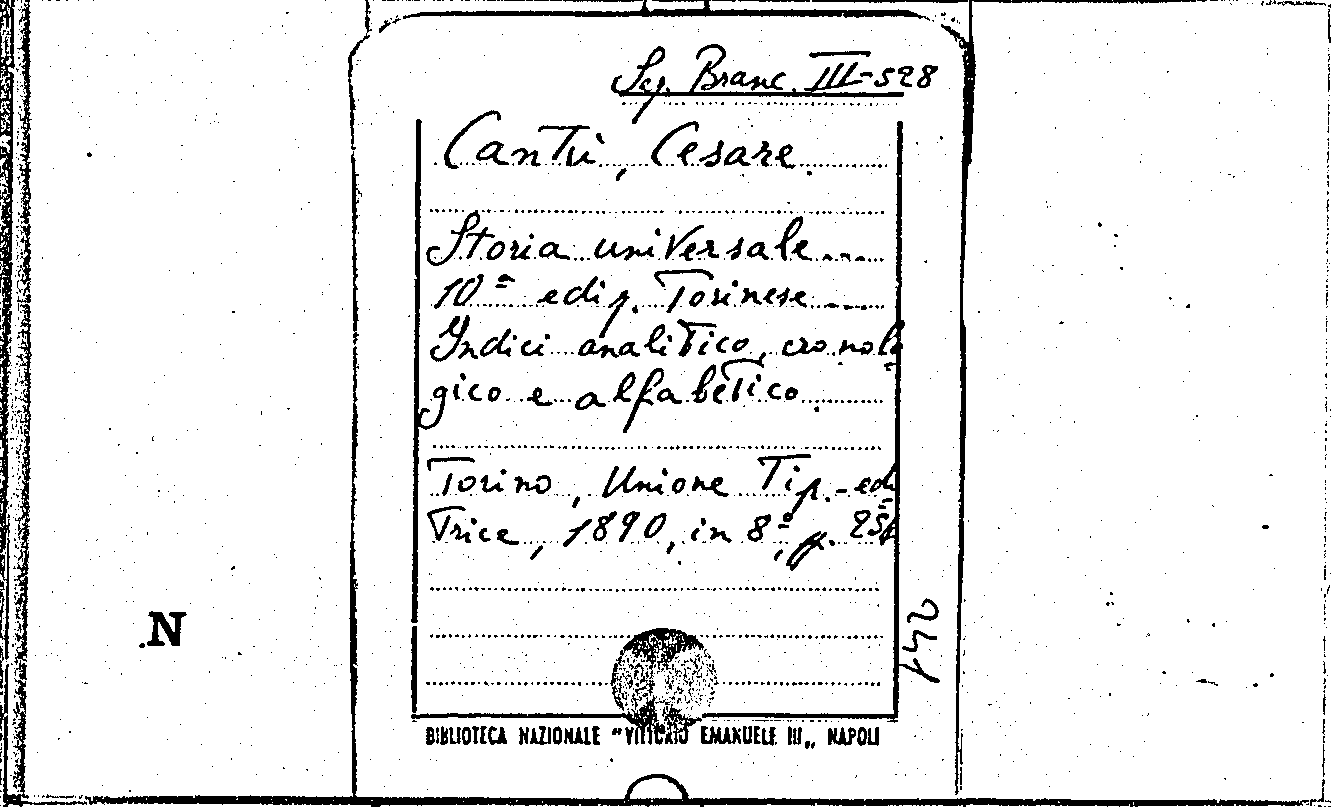 Sey. Branc. III-528
Cantù, Cesare.
Storia universale....
10ª ediz. Torinese....
Indici analitico, cronolo
gico e alfabetico.
Torino, Unione Tip.-edi
Trice, 1890, in 8º, pp.
N
BIBLIOTECA NAZIONALE "VITTORIO EMANUELE III„ NAPOLI